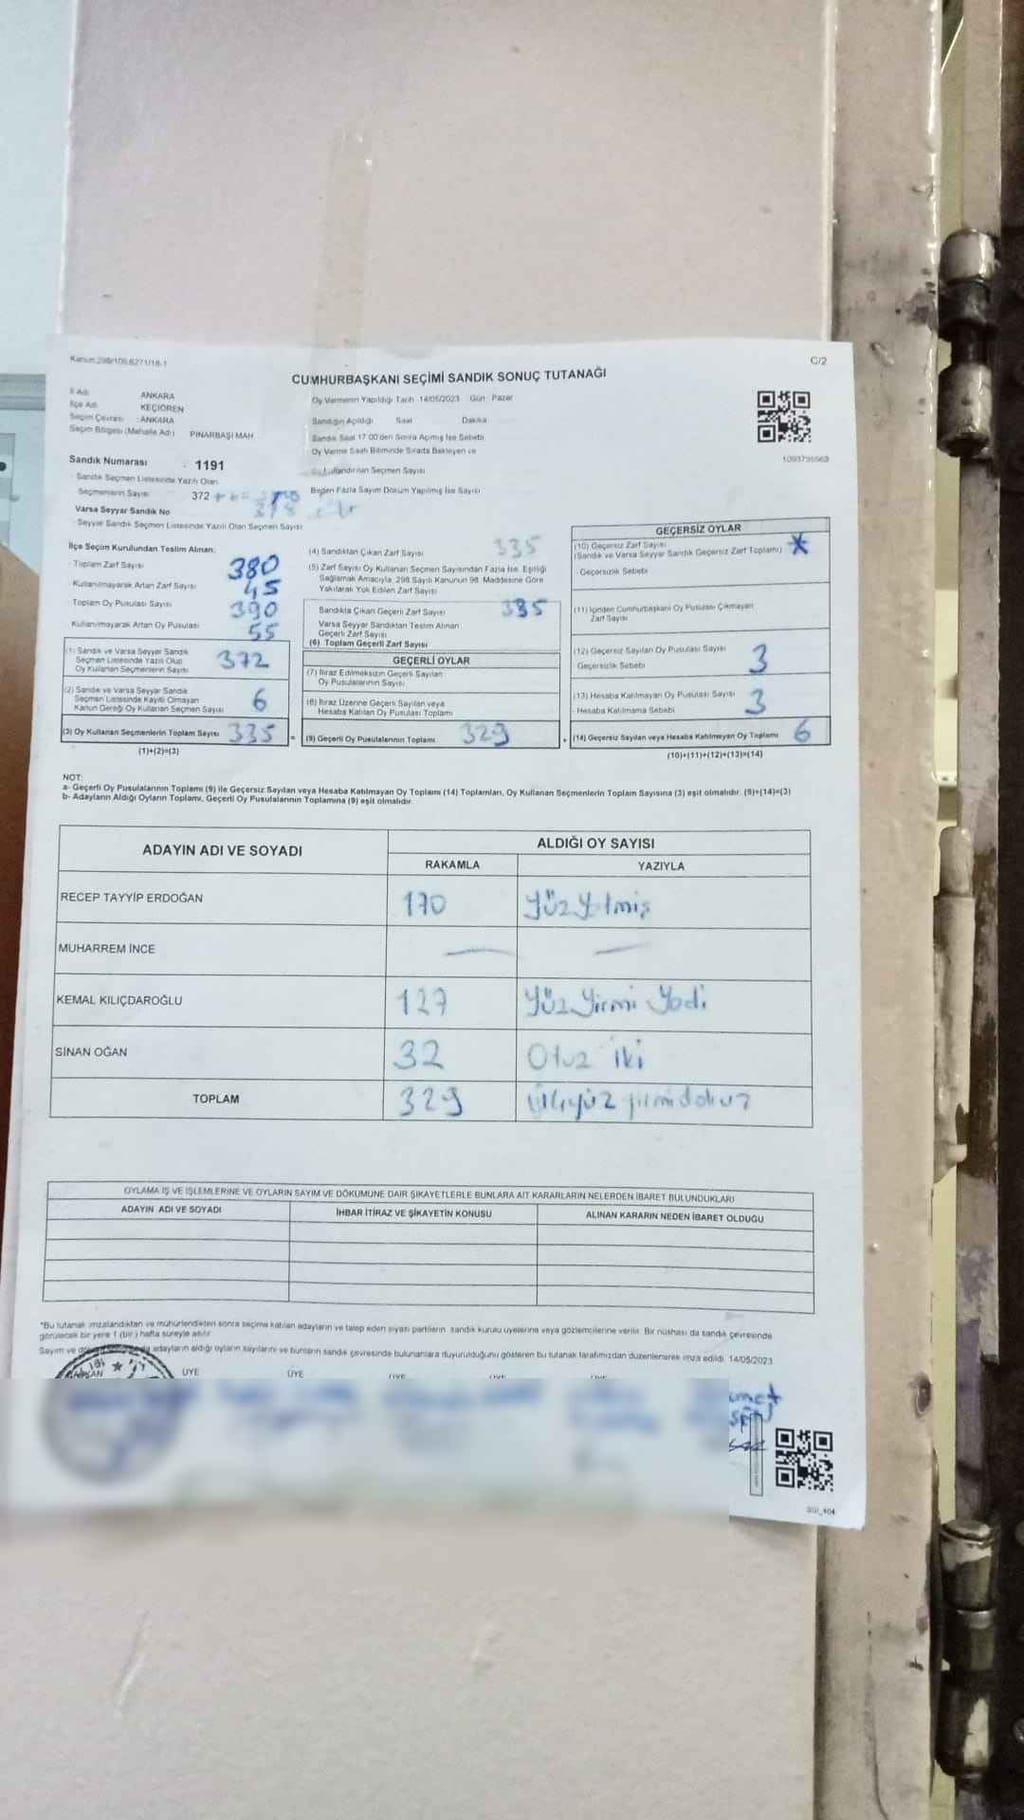 Kanun:298/105,6271/18-1
C/2
CUMHURBAŞKANI SEÇİMİ SANDIK SONUÇ TUTANAĞI
İl Adı ANKARA
İlçe Adı KEÇİÖREN
Seçim Çevresi :ANKARA
Seçim Bölgesi (Mahalle Adı) PINARBAŞI MAH
Sandık Numarası : 1191
Sandık Seçmen Listesinde Yazılı Olan
Seçmenlerin Sayısı 372
Varsa Seyyar Sandık No
Seyyar Sandık Seçmen Listesinde Yazılı Olan Seçmen Sayısı
Oy Vermenin Yapıldığı Tarih 14/05/2023 Gün: Pazar
Sandığın Açıldığı Saat Dakika
Sandık Saat 17.00'den Sonra Açılmış İse Sebebi
Oy Verme Saati Bitiminde Sırada Bekleyen ve
Oy Kullandırılan Seçmen Sayısı
Birden Fazla Sayım Döküm Yapılmış İse Sayısı
İlçe Seçim Kurulundan Teslim Alınan:
Toplam Zarf Sayısı 380
Kullanılmayarak Artan Zarf Sayısı 45
Toplam Oy Pusulası Sayısı 390
Kullanılmayarak Artan Oy Pusulası 55
(1) Sandık ve Varsa Seyyar Sandık
Seçmen Listesinde Yazılı Olup
Oy Kullanan Seçmenlerin Sayısı 372
(2) Sandık ve Varsa Seyyar Sandık
Seçmen Listesinde Kayıtlı Olmayan
Kanun Gereği Oy Kullanan Seçmen Sayısı 6
(3) Oy Kullanan Seçmenlerin Toplam Sayısı 335
(1)+(2)=(3)
(4) Sandıktan Çıkan Zarf Sayısı 335
(5) Zarf Sayısı Oy Kullanan Seçmen Sayısından Fazla İse, Eşitliği
Sağlamak Amacıyla, 298 Sayılı Kanunun 98. Maddesine Göre
Yakılarak Yok Edilen Zarf Sayısı
Sandıkta Çıkan Geçerli Zarf Sayısı 335
Varsa Seyyar Sandıktan Teslim Alınan
Geçerli Zarf Sayısı
(6) Toplam Geçerli Zarf Sayısı
GEÇERLİ OYLAR
(7) İtiraz Edilmeksizin Geçerli Sayılan
Oy Pusulasının Sayısı
(8) İtiraz Üzerine Geçerli Sayılan veya
Hesaba Katılan Oy Pusulası Toplamı
(9) Geçerli Oy Pusulalarının Toplamı 329
GEÇERSİZ OYLAR
(10) Geçersiz Zarf Sayısı
(Sandık ve Varsa Seyyar Sandık Geçersiz Zarf Toplamı)
Geçersizlik Sebebi
(11) İçinden Cumhurbaşkanı Oy Pusulası Çıkmayan
Zarf Sayısı
(12) Geçersiz Sayılan Oy Pusulası Sayısı 3
Geçersizlik Sebebi
(13) Hesaba Katılmayan Oy Pusulası Sayısı 3
Hesaba Katılmama Sebebi
(14) Geçersiz Sayılan veya Hesaba Katılmayan Oy Toplamı 6
(10)+(11)+(12)+(13)=(14)
NOT:
a- Geçerli Oy Pusulalarının Toplamı (9) ile Geçersiz Sayılan veya Hesaba Katılmayan Oy Toplamı (14) Toplamları, Oy Kullanan Seçmenlerin Toplam Sayısına (3) eşit olmalıdır. (9)+(14)=(3)
b- Adayların Aldığı Oyların Toplamı, Geçerli Oy Pusulalarının Toplamına (9) eşit olmalıdır.
ADAYIN ADI VE SOYADI
ALDIĞI OY SAYISI
RAKAMLA YAZIYLA
RECEP TAYYİP ERDOĞAN 170 Yüzyetmiş
MUHARREM İNCE — —
KEMAL KILIÇDAROĞLU 127 Yüz Yirmi Yedi
SİNAN OĞAN 32 Otuz iki
TOPLAM 329 Üçyüz yirmidokuz
OYLAMA İŞ VE İŞLEMLERİNE VE OYLARIN SAYIM VE DÖKÜMÜNE DAİR ŞİKAYETLERLE BUNLARA AİT KARARLARIN NELERDEN İBARET BULUNDUKLARI
ADAYIN ADI VE SOYADI İHBAR İTİRAZ VE ŞİKAYETİN KONUSU ALINAN KARARIN NEDEN İBARET OLDUĞU
*Bu tutanak imzalandıktan ve mühürlendikten sonra seçime katılan adayların ve talep eden siyasi partilerin sandık kurulu üyelerine veya gözlemcilerine verilir. Bir nüshası da sandık çevresinde
görülecek bir yere 1 (bir) hafta süreyle asılır.
Sayım ve adayların aldığı oyların sayılarını ve bunların sandık çevresinde bulunanlara duyurulduğunu gösteren bu tutanak tarafımızdan düzenlenerek imza edildi. 14/05/2023
ÜYE ÜYE